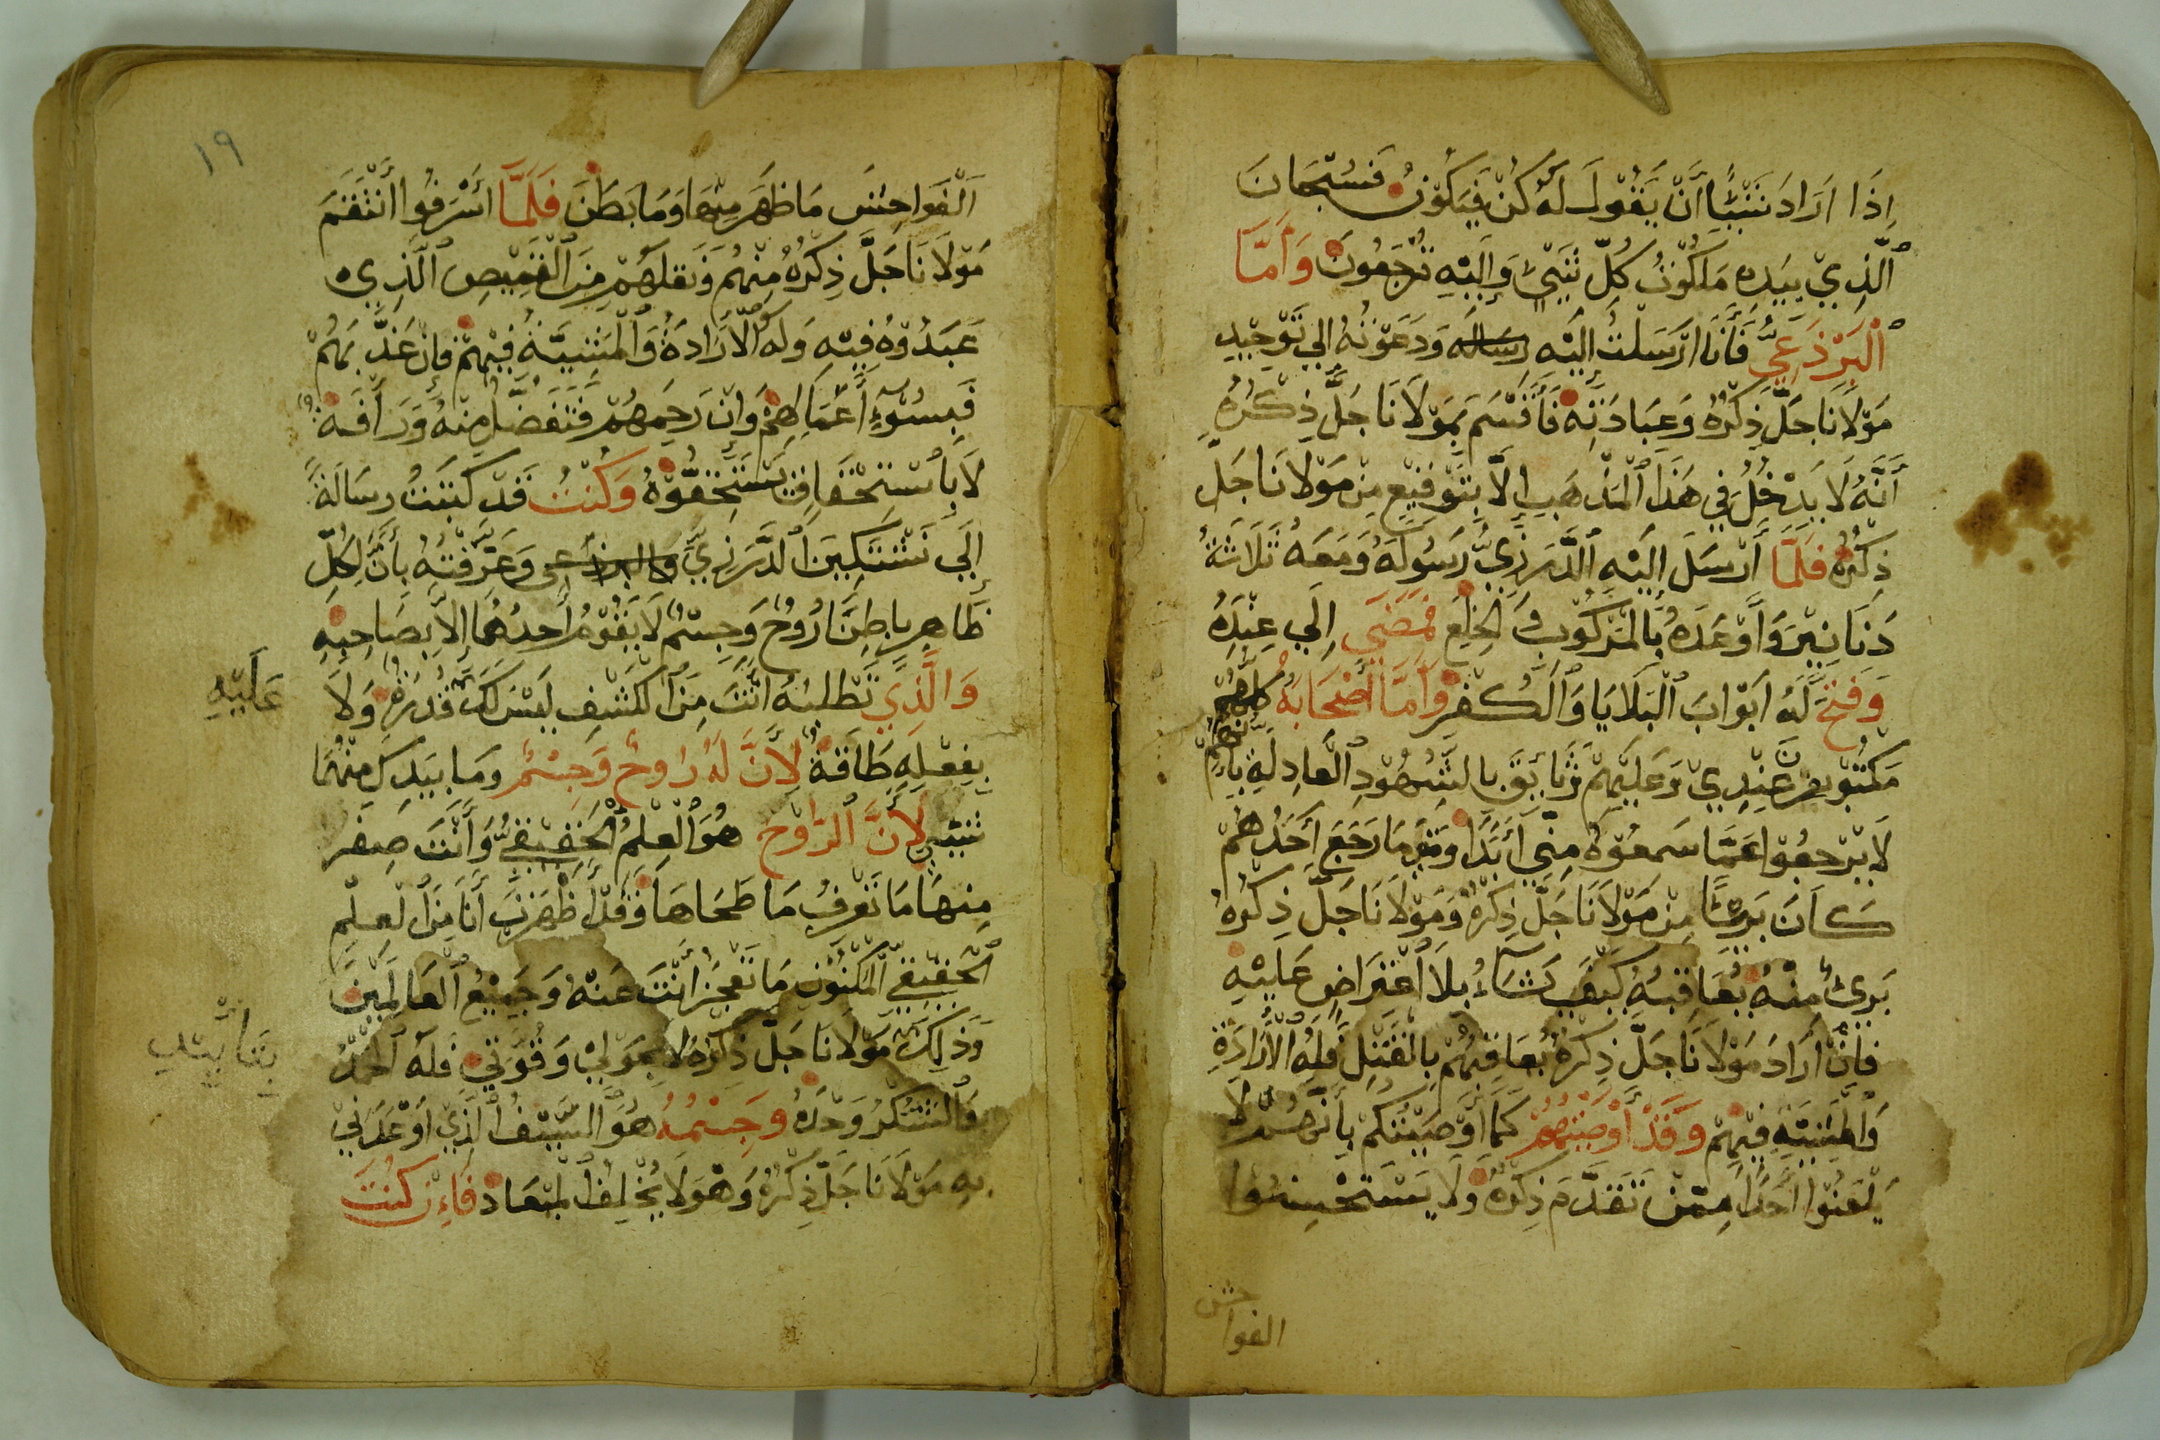 إِذَا ارَادَ شَيْئًا أَنْ يَقُولَ لَهُ كُنْ فَيَكُونُ فَسُبْحَانَ
ٱلَّذِيْ بِيَدِهِ مَلَكُوْتُ كُلِّ شَيْئٍ وَإِلَيْهِ تُرْجَعُونَ وَأَمَّا
ٱلْبَرْذَعِيُّ فَأَنَا ارْسَلْتُ إِلَيْهِ رِسَالَه وَدَعَوْتُهُ إِلي تَوْحِيدِ
مَوْلاَنَا جَلَّ ذِكْرُهُ وَعِبَادَتِهِ فَأَقْسَمَ بِمَوْلاَنَا جَلَّ ذِكْرُهُ
أَنَّهُ لَا يَدْخُلُ فِي هَذَا ٱلْمَذْهَبِ إِلَّا بِتَوْقِيْعٍ مِنْ مَوْلاَنَا جَلَّ
ذِكْرُهُ فَلَمَّا أَرْسَلَ إِلَيْهِ ٱلدَّرَزِيُّ رَسُولَهُ وَمَعَهُ ثَلَاثَةُ
دَنَانِيْرَ وَأَوْعَدَهُ بِالْمَرْكُوبِ وَ الخِلَعِ فَمَضَي إِلَي عِنْدِهِ
وَفَتَحَ لَهُ ابْوَابَ ٱلْبَلَايَا وَٱلْكُفْرِ وَأَمَّا أَصْحَابُهُ كلهم
مَكْتُوبِيْنَ عِنْدِيْ وَعَلَيْهِمْ وَثَايِقُ بِالشُّهُوْدِ ٱلْعَادِلَةِ بِأَنَّهُمْ
لَا يَرْجِعُوْا عَمَّا سَمعُوْهُ مِنِّي أَبَدًا وَمَتَي مَا رَجَعَ أَحَدُهُمْ
كَانَ بَرِيًّا مِنْ مَوْلاَنَا جَلَّ ذِكْرُهُ وَمَوْلاَنَا جَلَّ ذِكْرُهُ
بَرِئٌ مِنْهُ يُعَاقِبُهُ كَيْفَ يَشَآءُ بِلاَ ٱعْتِرَاضٍ عَلَيْهِ
فَإِنْ أَرَادَ مَوْلاَنَا جَلَّ ذِكْرُهُ يُعَاقِبُهُمْ بِالْقَتْلِ فَلَهُ ٱلْأِرَادَةِ
وَٱلْمَشِيَّةِ فِيْهِمْ وَقَدْ أَوْصَيْتُهُمْ كَمَا أَوْصَيْتُكُمْ بِأَنَّهُمْ لَا
يَلْعَنُوْا أَحَدًا مِمَّنْ تَقَدَّمَ ذِكْرُهُ وَلَا يَسْتَحْسِنُوا
الفواحش
١٩
ٱلْفَوَاحِشَ مَا ظَهَرَ مِنْهَا وَمَا بَطَنَ فَلَمَّا أَسْرَفُوا أَنْتَقَمَ
مَوْلاَنَا جَلَّ ذِكْرُهُ مِنْهُمْ وَنَقَلَهُمْ مِنَ ٱلْقَمِيْصِ ٱلَّذِي
عَبَدُوْهُ فِيْهِ وَلَهُ ٱلْأِرَادَةُ وَٱلْمَشِيَّةُ فِيْهِمْ فَإِنْ عَذَّبَهُمْ
فَبِسُوْءِ أَعْمَالِهِمْ وَإِنْ رَحِمَهُمْ فَتَفَضُّلٌ مِنْهُ وَرَأَفَةٌ
لَا بِأسْتِحْقَاقٍ يَسْتَحِقُّوْهُ وَكُنْتُ قَدْ كَتَبْتُ رِسَالَةً
إِلَي نَشْتَكِيْنَ ٱلدَّرَزِيِّ والبرذعي وَعَرَّفْتُهُ بِأَنَّ لِكُلِّ
ظَاهِرٍ بَاطِنًا رُوحٌ وَجِسْمٌ لَا يَقُوْمُ أَحَدُهُمَا إِلاَّ بِصَاحِبِهِ
وَالَّذِي تَطْلُبُهُ انْتَ مِنَ ٱلْكَشْفِ لَيْسَ لَكَ قُدْرَةٌ وَلَا
عَلَيْهِ
بِفِعْلِهِ طَاقَةٌ لِأَنَّ لَهُ رُوْحٌ وَجِسْمٌ وَمَا بِيَدِكَ مِنْهُمَا
شَيْئٍ لِأَنَّ ٱلرُّوْحَ هُوَ ٱلْعِلْمُ ٱلْحَقِيْقِيُّ وَأَنْتَ صِفْر
مِنْهَا مَا تَعْرِفُ مَا طَحَاهَا وَقَدْ أَظْهَرْتُ أَنَا مِنَ ٱلْعِلْمِ
ٱلْحَقِيْقِيِّ ٱلْمَكْنُوْنِ مَا تَعْجَزُ أَنْتَ عَنْهُ وَجَمِيْعُ ٱلْعَالَمِيْنَ
وَذَلِكَ مَوْلاَنَا جَلَّ ذِكْرُهُ لاَ بِحَوْلِيْ وَقُوَّتِيْ فَلَهُ ٱلْحَمْدُ
بِتَأْيِيْدِ
وَٱلشُّكْرُ وَحْدَهُ وَجِسْمُهُ هُوَ ٱلسَّيْفُ ٱلَّذِيْ أَوْعَدَنِيْ
بِهِ مَوْلاَنَا جَلَّ ذِكْرُهُ وَهْوَ لَا يُخْلِفُ ٱلْمِيْعَادَ فَإِنْ كُنْتَ